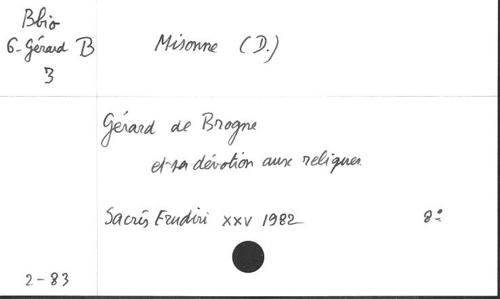 Bbio
6-Gérard B
3
Misonne (D.)
Gérard de Brogne
et sa dévotion aux reliques
Sacris Erudiri XXV 1982 8º
2-83